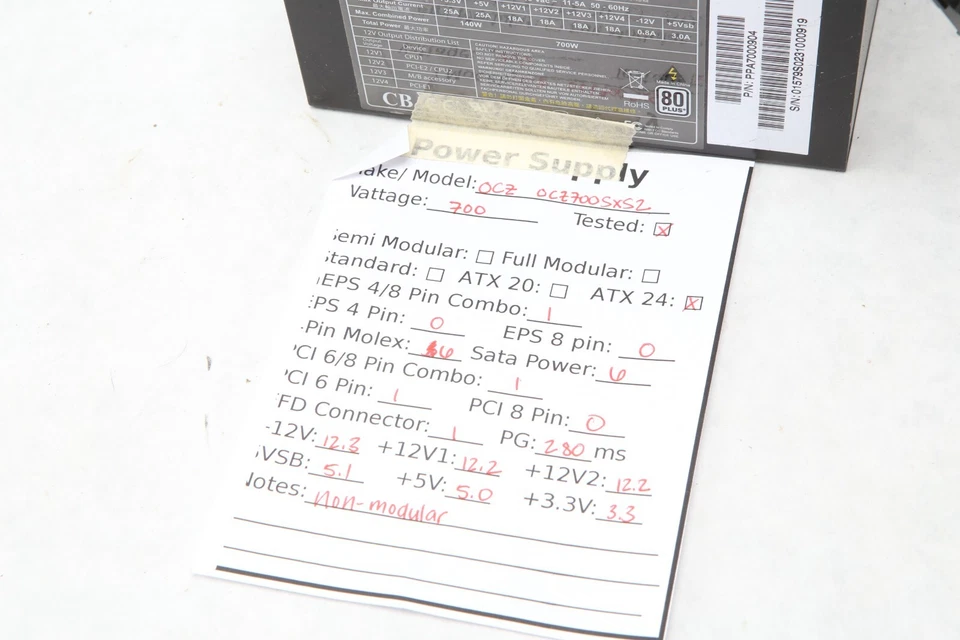 +3.3V +5V +12V1 +12V2 +12V3 +12V4 -12V +5Vsb
25A 25A 18A 18A 18A 18A 0.8A 3.0A
Max. Combined Power 140W
Total Power 700W
12V Output Distribution List
Device
12V1 CPU1
12V2 PCI-E2 / CPU2
12V3 M/B accessory
12V4 PCI-E1
CAUTION! HAZARDOUS AREA
RoHS
80
PLUS
CB
P/N: PPA7000904
S/N: 01579S0231000919
Power Supply
ake/ Model: OCZ OCZ700SXS2
Wattage: 700 Tested: ☒
Semi Modular: ☐ Full Modular: ☐
Standard: ☐ ATX 20: ☐ ATX 24: ☒
EPS 4/8 Pin Combo: 1
EPS 4 Pin: 0 EPS 8 pin: 0
Pin Molex: 6 Sata Power: 6
PCI 6/8 Pin Combo: 1
PCI 6 Pin: 1 PCI 8 Pin: 0
FD Connector: 1 PG: 280 ms
-12V: 12.3 +12V1: 12.2 +12V2: 12.2
VSB: 5.1 +5V: 5.0 +3.3V: 3.3
Notes: Non-modular